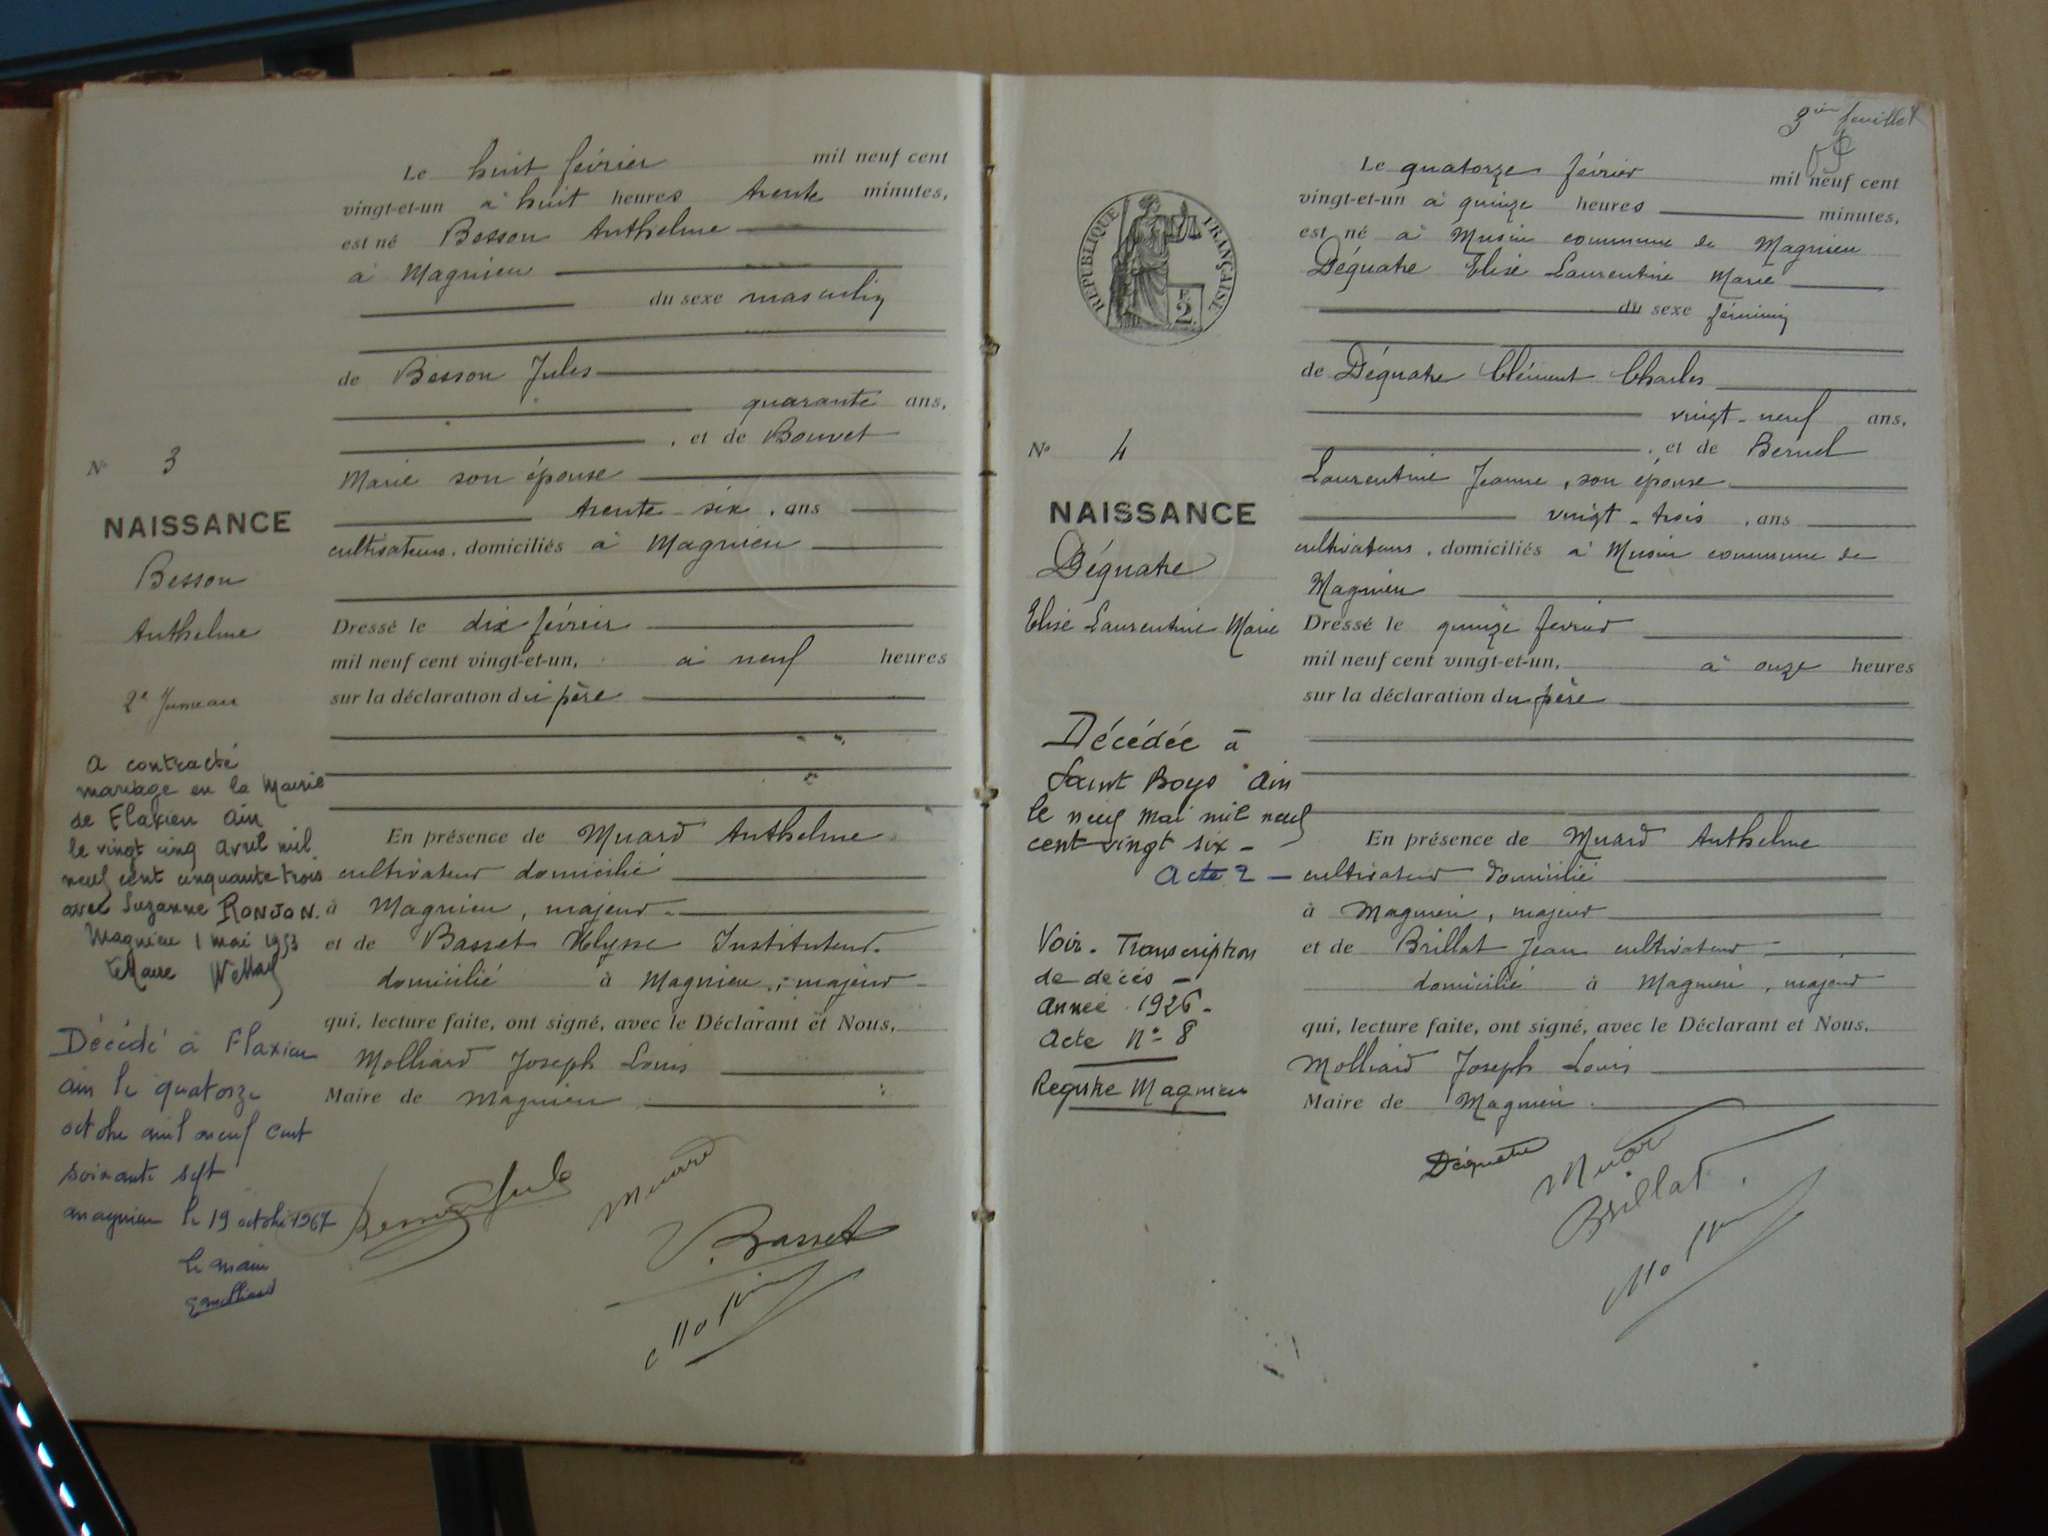 Le huit février mil neuf cent
vingt-et-un à huit heures trente minutes,
est né Besson Anthelme
à Magnieu
du sexe masculin
de Besson Jules
quarante ans,
, et de Bouvet
Marie son épouse
trente-six, ans
cultivateurs, domiciliés à Magnieu
Dressé le dix février
mil neuf cent vingt-et-un, à neuf heures
sur la déclaration du père
En présence de Muard Anthelme
cultivateur domicilié
à Magnieu, majeur
et de Basset Ulysse Instituteur
domicilié à Magnieu, majeur
qui, lecture faite, ont signé, avec le Déclarant et Nous,
Molliard Joseph Louis
Maire de Magnieu
Muard
V. Basset
N° 3
NAISSANCE
Besson
Anthelme
2e Jumeau
a contracté
mariage en la Mairie
de Flaxieu Ain
le vingt cinq avril mil
neuf cent cinquante trois
avec Suzanne RONJON.
Magnieu 1 mai 1953
Le Maire
Décédé à Flaxieu
ain le quatorze
octobre mil neuf cent
soixante sept
magnieu le 19 octobre 1967
le maire
3ième feuillet
Le quatorze février mil neuf cent
vingt-et-un à quinze heures minutes,
est né à Musin commune de Magnieu
Déquatre Elise Laurentine Marie
du sexe féminin
de Déquatre Clément Charles
vingt-neuf ans,
, et de Bernel
Laurentine Jeanne, son épouse
vingt-trois, ans
cultivateurs, domiciliés à Musin commune de
Magnieu
Dressé le quinze février
mil neuf cent vingt-et-un, à onze heures
sur la déclaration du père
En présence de Muard Anthelme
cultivateur domicilié
à Magnieu, majeur
et de Brillat Jean cultivateur
domicilié à Magnieu, majeur
qui, lecture faite, ont signé, avec le Déclarant et Nous,
Molliard Joseph Louis
Maire de Magnieu.
Déquatre
Muard
Brillat
RÉPUBLIQUE FRANÇAISE
2
N° 4
NAISSANCE
Déquatre
Elise Laurentine Marie
Décédée à
Saint Boys Ain
le neuf mai mil neuf
cent vingt six -
Acte 2 -
Voir. Transcription
de décès -
Année 1926 -
Acte n° 8
Registre Magnieu